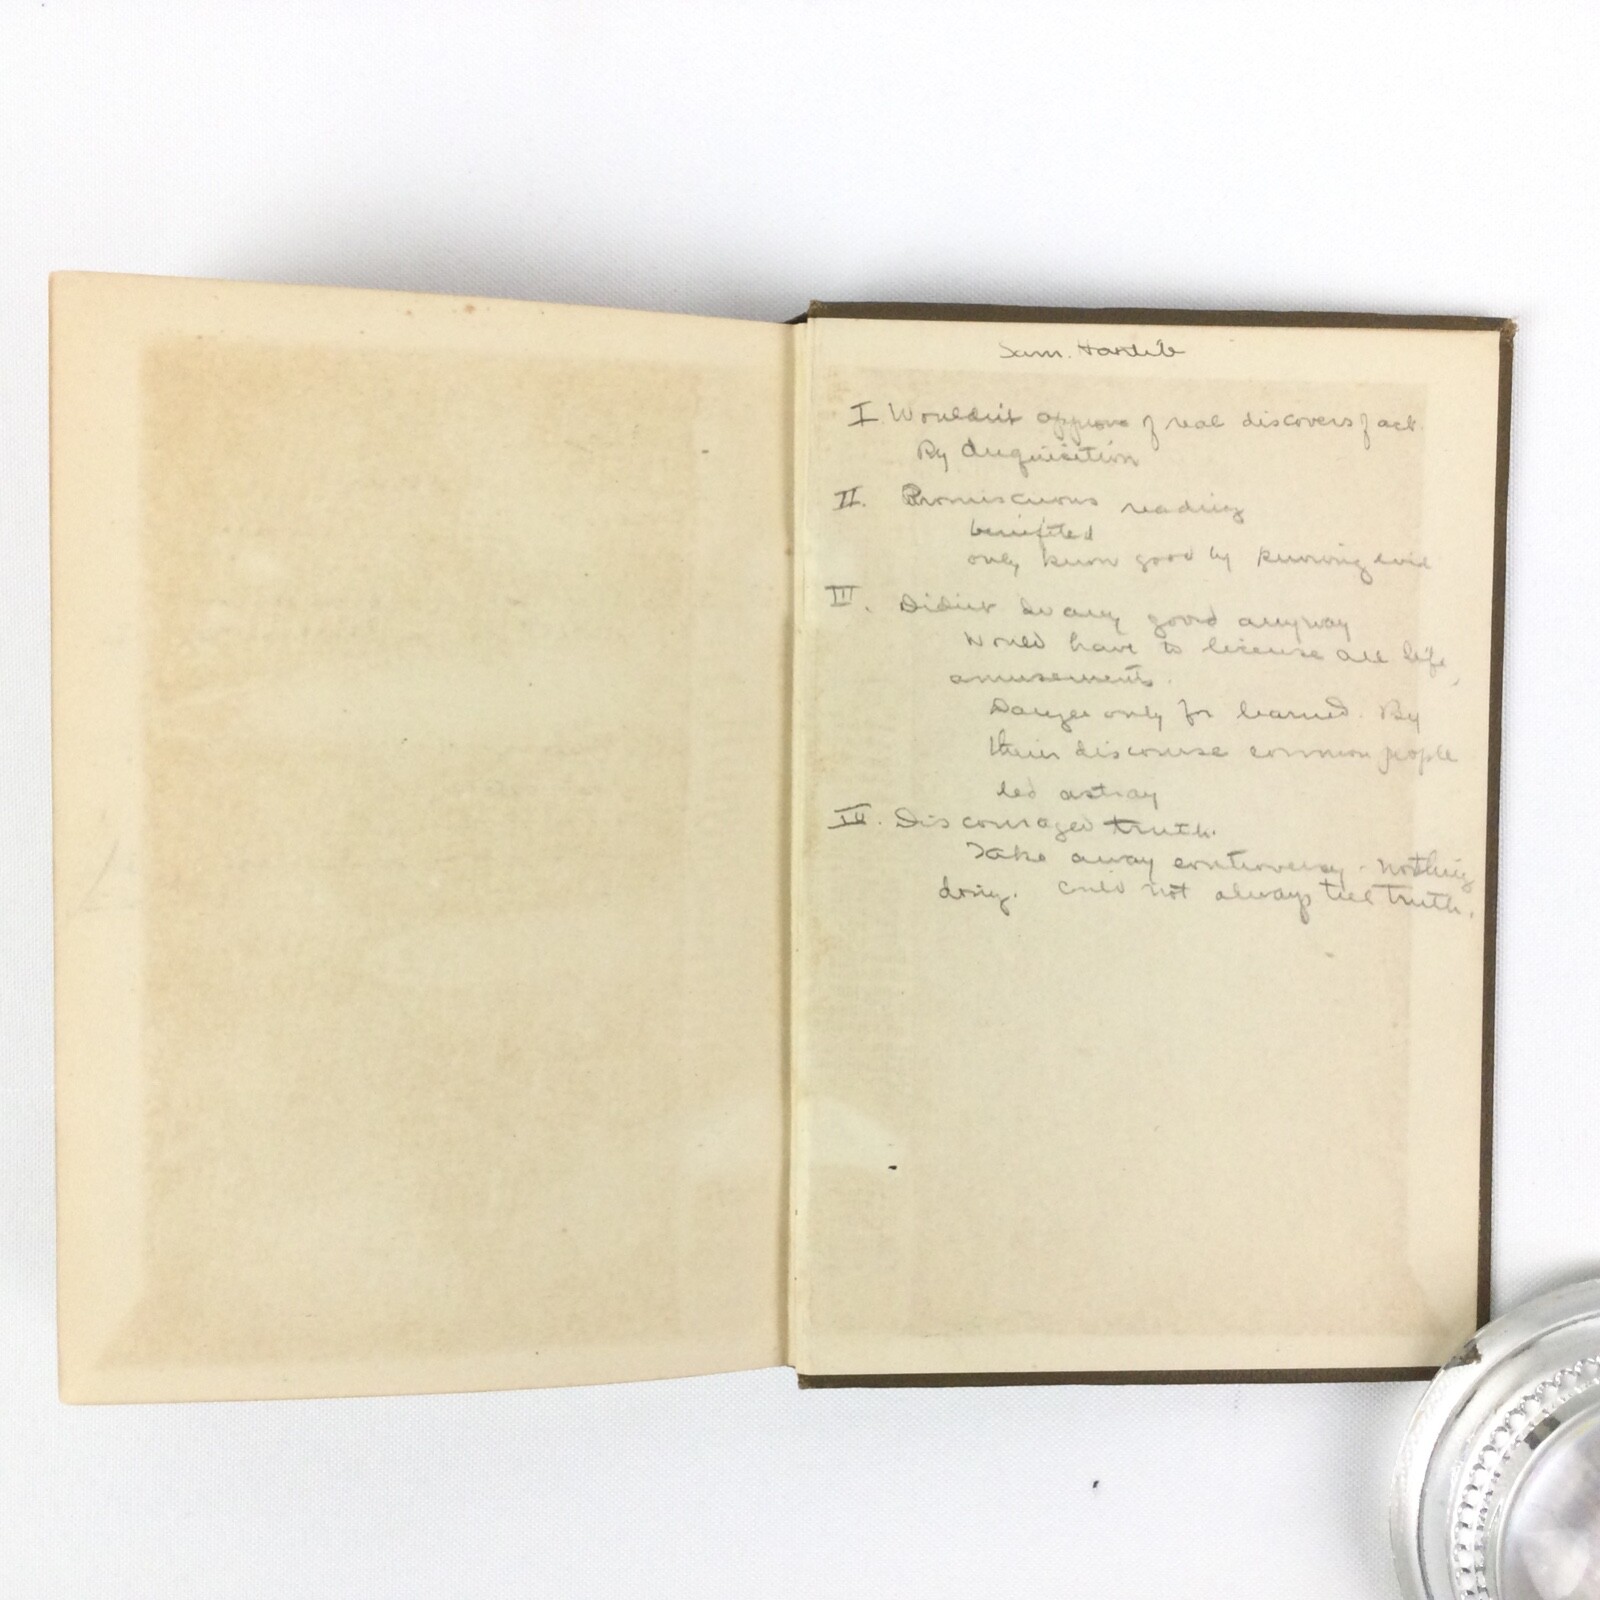 Sam. Hartlib
I. Wouldn't approve of real discovers of act.
By Inquisition
II. Promiscuous reading
benifited
only know good by knowing evil
III. Didn't do any good anyway
Would have to license all life,
amusements.
Danger only for learned. By
their discourse common people
led astray
IV. Discouraged truth.
Take away controversy - nothing
doing. Could not always tell truth.